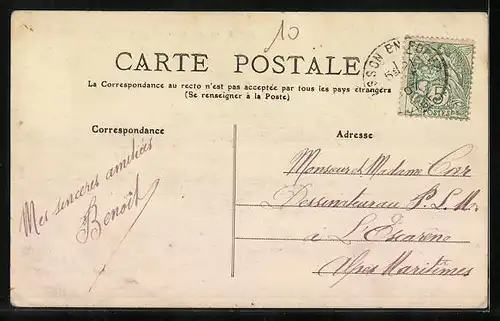 10
CARTE POSTALE
La Correspondance au recto n'est pas acceptée par tous les pays étrangers
(Se renseigner à la Poste)
Correspondance
Mes sincères amitiés
Benoît
Adresse
Monsieur & Madame
Dessinateur au P. L. M.
à L'Escarène
Alpes Maritimes
5
POSTES